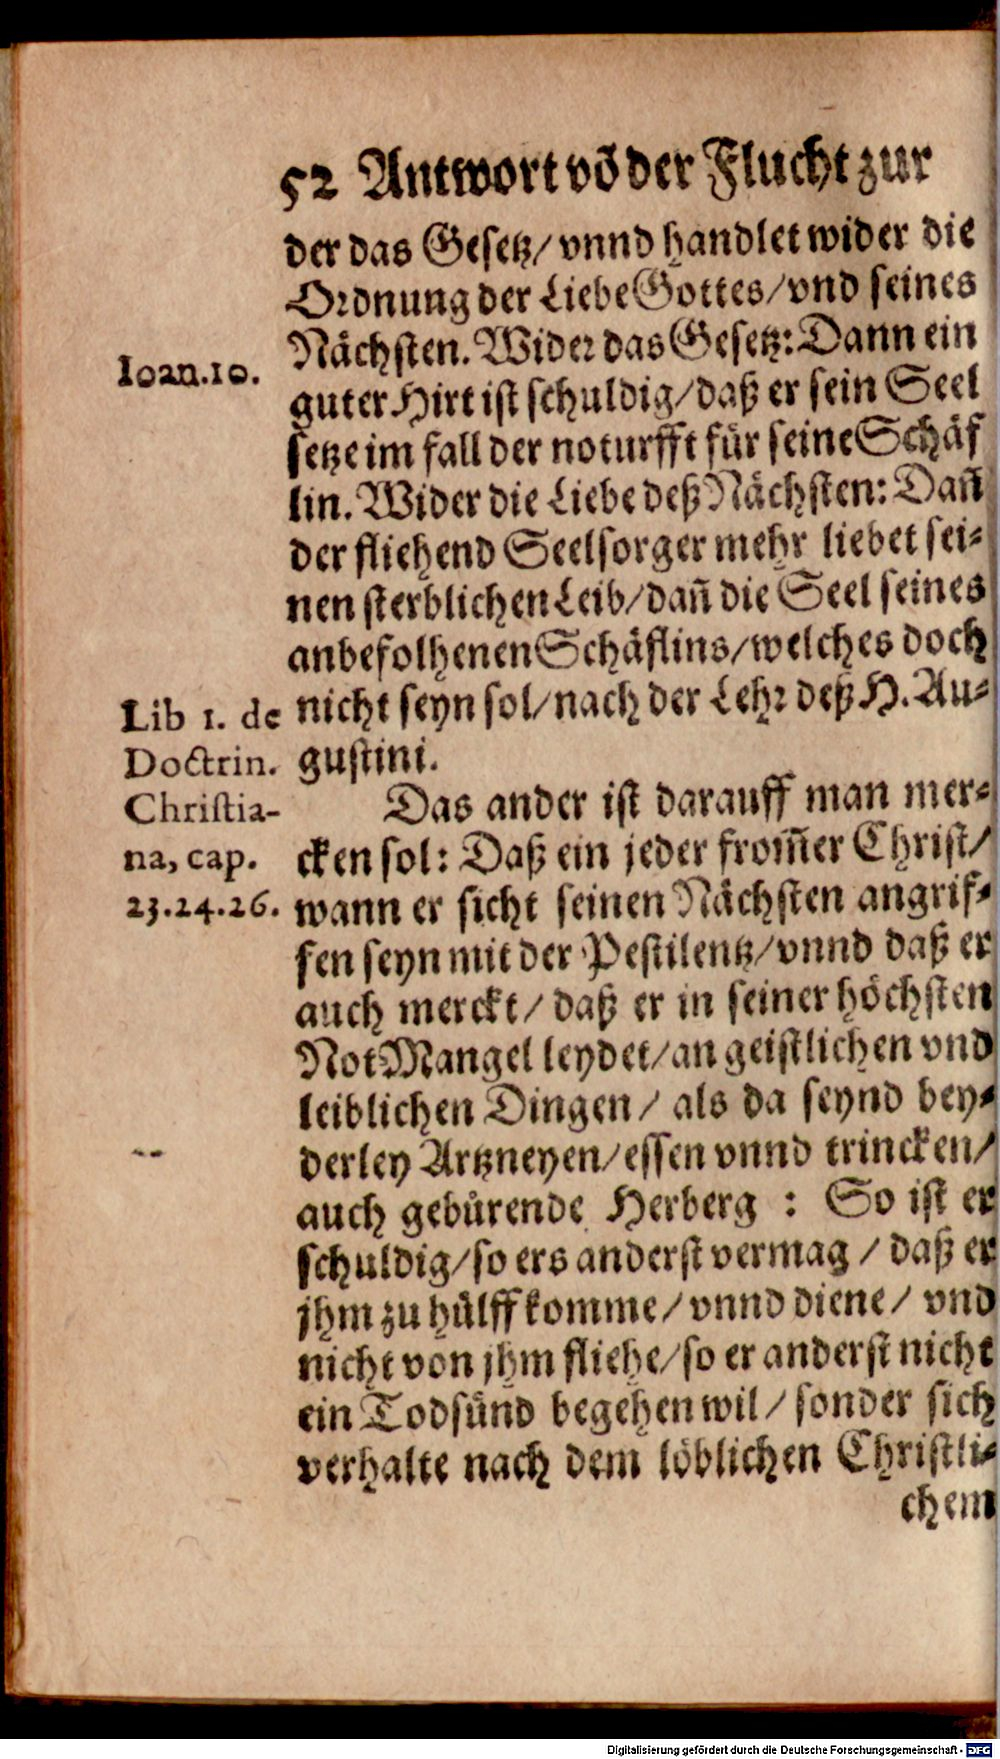 52 Antwort võ der Flucht zur
der das Gesetz/ vnnd handlet wider die
Ordnung der Liebe Gottes/ vnd seines
Nächsten. Wider das Gesetz: Dann ein
Ioan.10.
guter Hirt ist schuldig/ daß er sein Seel
setze im fall der noturfft für seine Schäf
lin. Wider die Liebe deß Nächsten: Dañ
der fliehend Seelsorger mehr liebet sei-
nen sterblichen Leib/ dañ die Seel seines
anbefolhenen Schäflins/ welches doch
nicht seyn sol/ nach der Lehr deß H. Au-
gustini.
Lib 1. de
Doctrin.
Christia-
na, cap.
23.24.26.
Das ander ist darauff man mer-
cken sol: Daß ein jeder from̃er Christ/
wann er sicht seinen Nächsten angrif-
fen seyn mit der Pestilentz/ vnnd daß er
auch merckt/ daß er in seiner höchsten
Not Mangel leydet/ an geistlichen vnd
leiblichen Dingen/ als da seynd bey-
derley Artzneyen/ essen vnnd trincken/
auch gebürende Herberg : So ist er
schuldig/ so ers anderst vermag / daß er
jhm zu hülff komme/ vnnd diene/ vnd
nicht von jhm fliehe/ so er anderst nicht
ein Todsünd begehen wil/ sonder sich
verhalte nach dem löblichen Christli-
chem
Digitalisierung gefördert durch die Deutsche Forschungsgemeinschaft - DFG